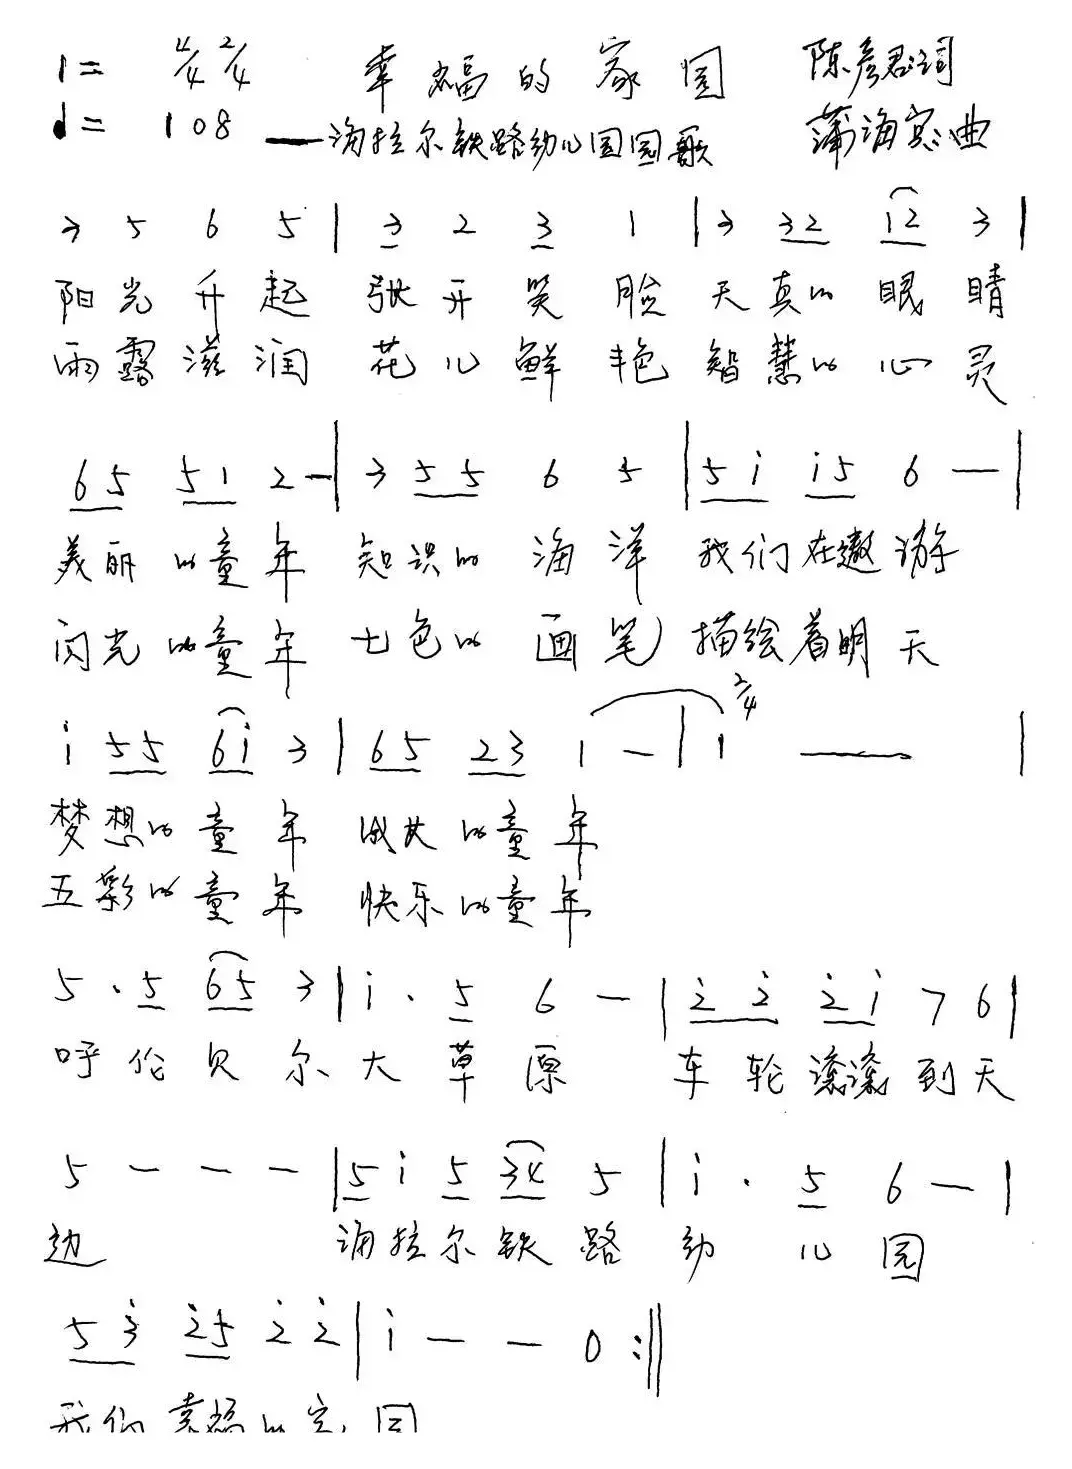 1= 4/4 2/4 幸福的家园 陈彦君词
♩= 108 ——海拉尔铁路幼儿园园歌 蒲海宽曲
3 5 6 5 | 3 2 3 1 | 3 32 12 3 |
阳光升起 张开笑脸 天真的眼睛
雨露滋润 花儿鲜艳 智慧的心灵
65 51 2 — | 3 55 6 5 | 5i i5 6 — |
美丽的童年 知识的海洋 我们在遨游
闪光的童年 七色的画笔 描绘着明天
i 55 6i 3 | 65 23 1 — | 2/4 i —— |
梦想的童年 成长的童年
五彩的童年 快乐的童年
5 · 5 65 3 | i · 5 6 — | 2̇ 2̇ 2̇ i 7 6 |
呼伦贝尔大草原 车轮滚滚到天
5 — — — | 5 i 5 34 5 | i · 5 6 — |
边 海拉尔铁路幼儿园
5 3̇ 2̇5 2̇ 2̇ | i — — 0 :||
我们幸福的家园